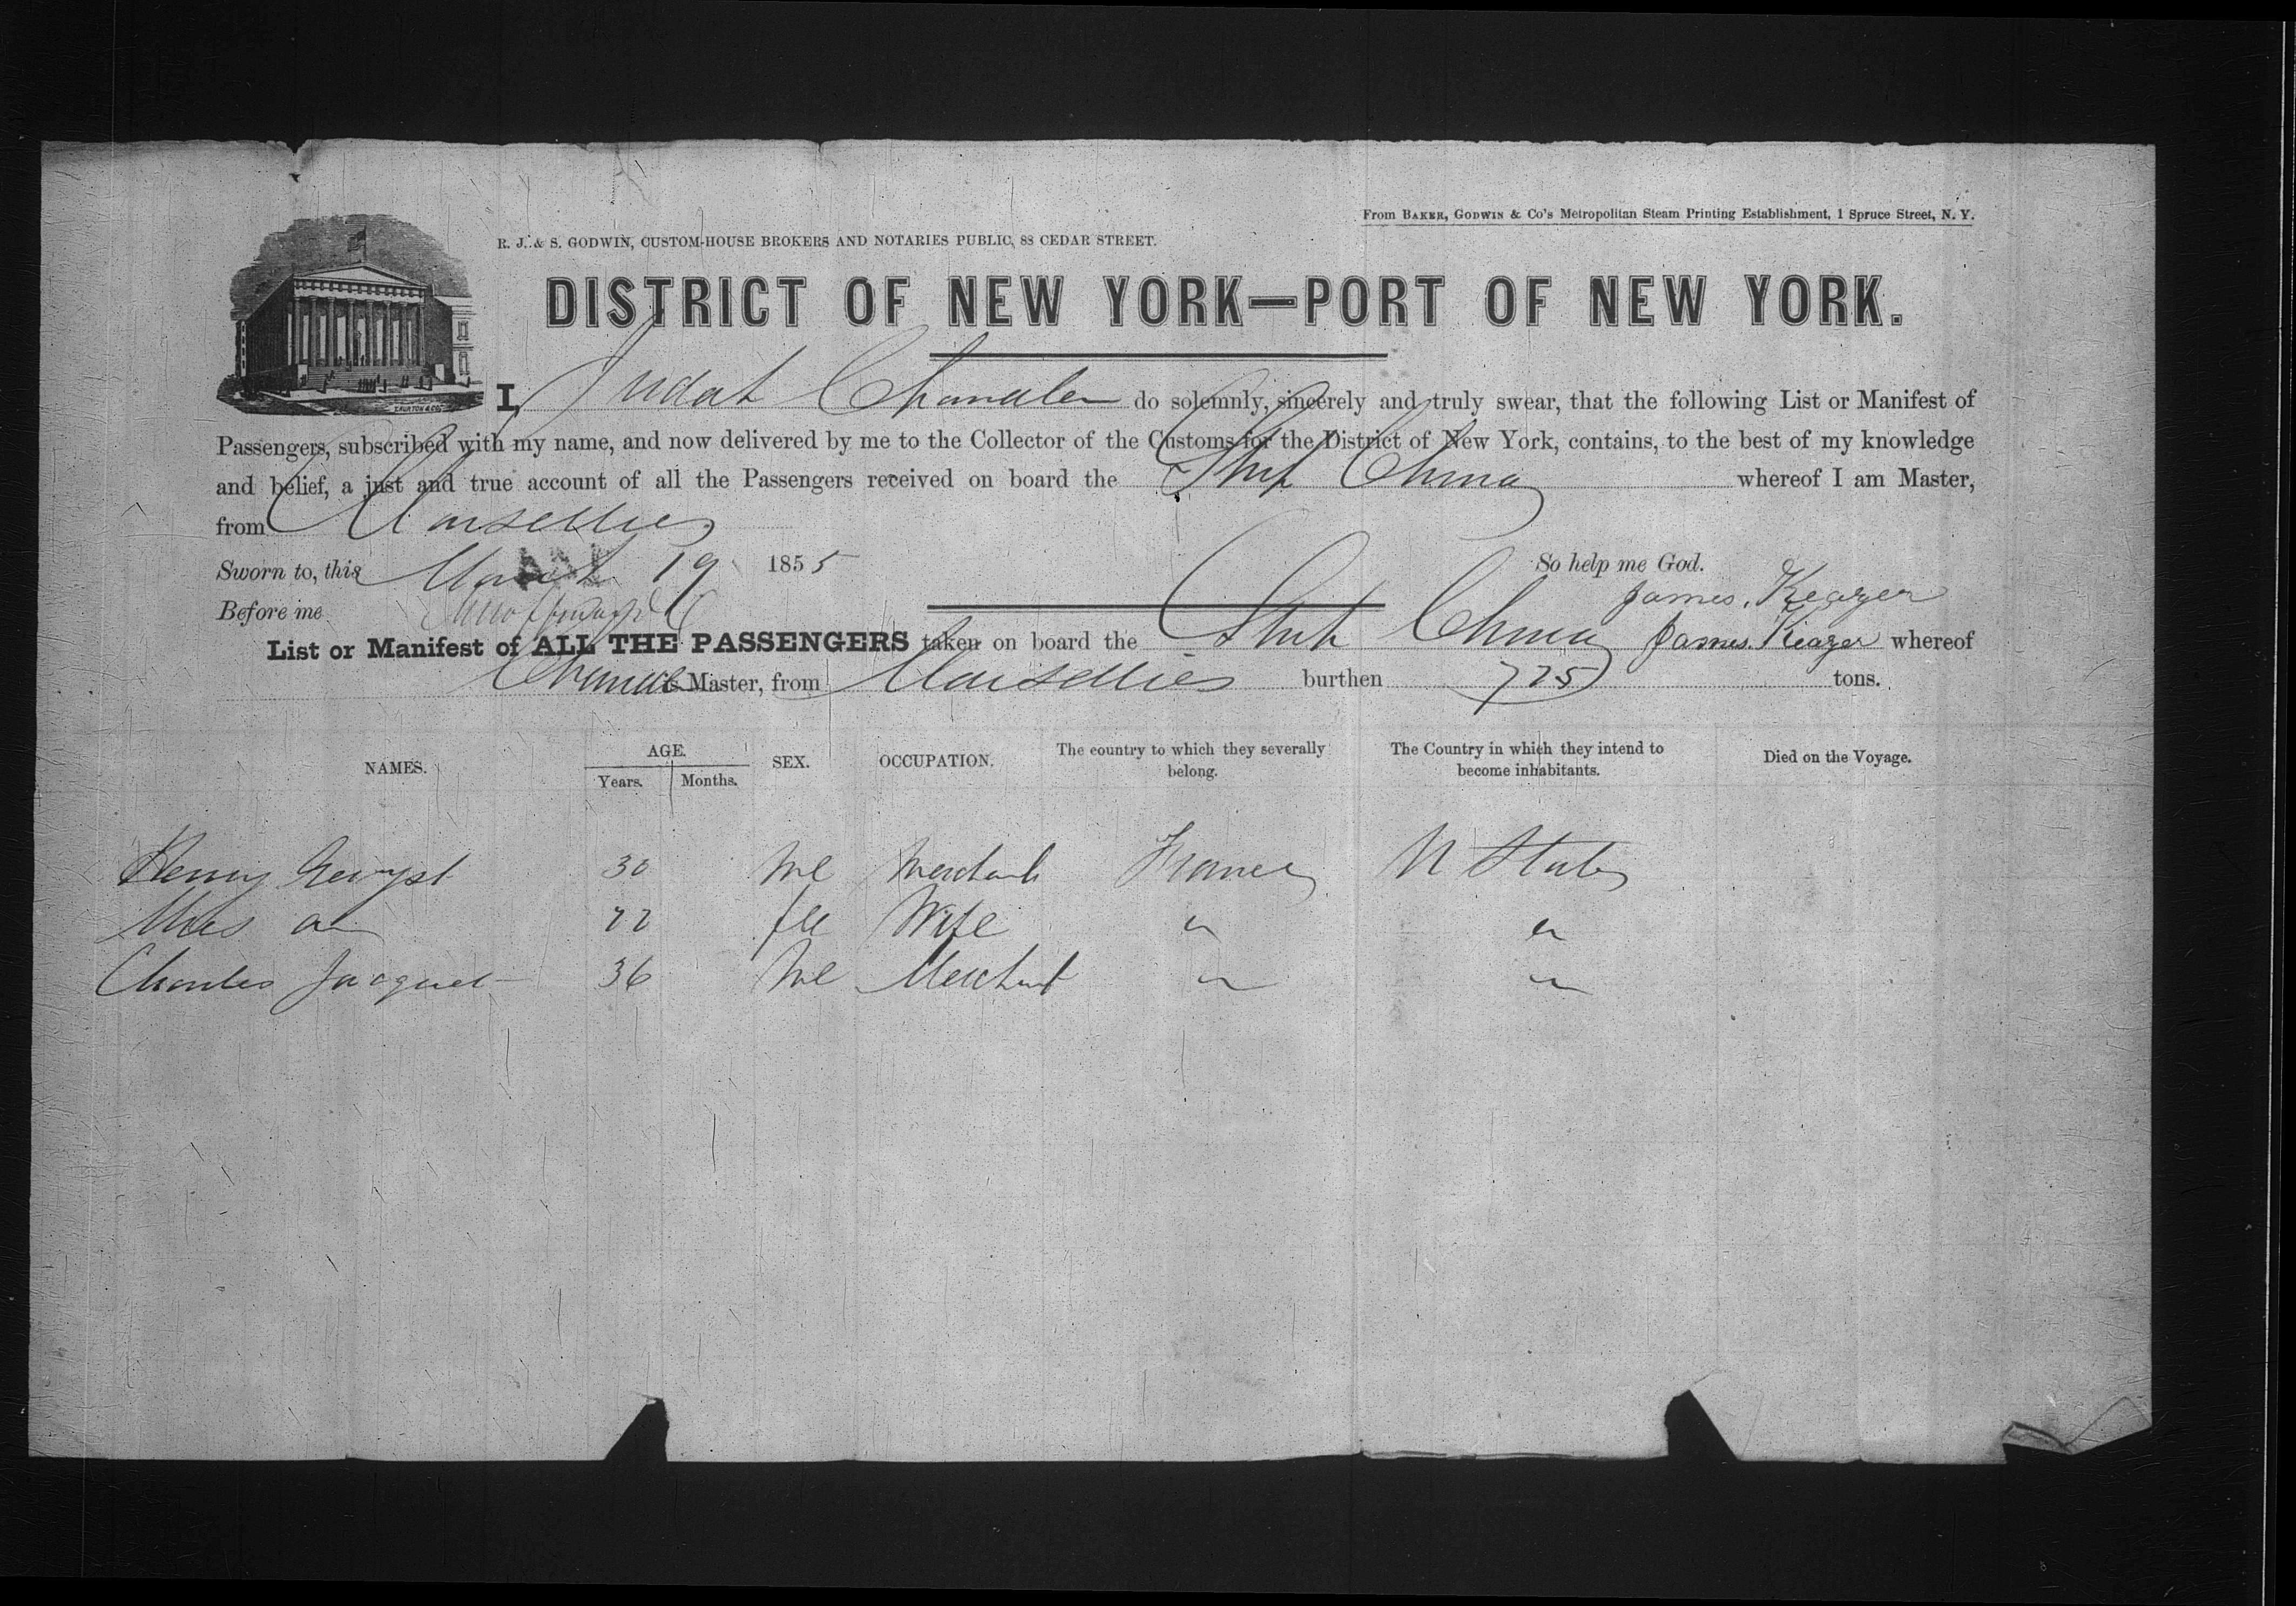 From BAKER, GODWIN & Co's Metropolitan Steam Printing Establishment, 1 Spruce Street, N. Y.
R. J. & S. GODWIN, CUSTOM-HOUSE BROKERS AND NOTARIES PUBLIC, 88 CEDAR STREET.
DISTRICT OF NEW YORK—PORT OF NEW YORK.
I, Judah Chandler do solemnly, sincerely and truly swear, that the following List or Manifest of
Passengers, subscribed with my name, and now delivered by me to the Collector of the Customs for the District of New York, contains, to the best of my knowledge
and belief, a just and true account of all the Passengers received on board the Ship China whereof I am Master,
from Marsellies
Sworn to, this March 19 1855 So help me God.
Before me James. Keazer
List or Manifest of ALL THE PASSENGERS taken on board the Ship China James. Keazer whereof
is Master, from Marsellies burthen 725 tons.
NAMES. AGE. SEX. OCCUPATION. The country to which they severally belong. The Country in which they intend to become inhabitants. Died on the Voyage.
Years. Months.
Henry 30 Me Merchant France U States
Mrs 22 fe Wife "
Charles Jacquet 36 Me Merchant "